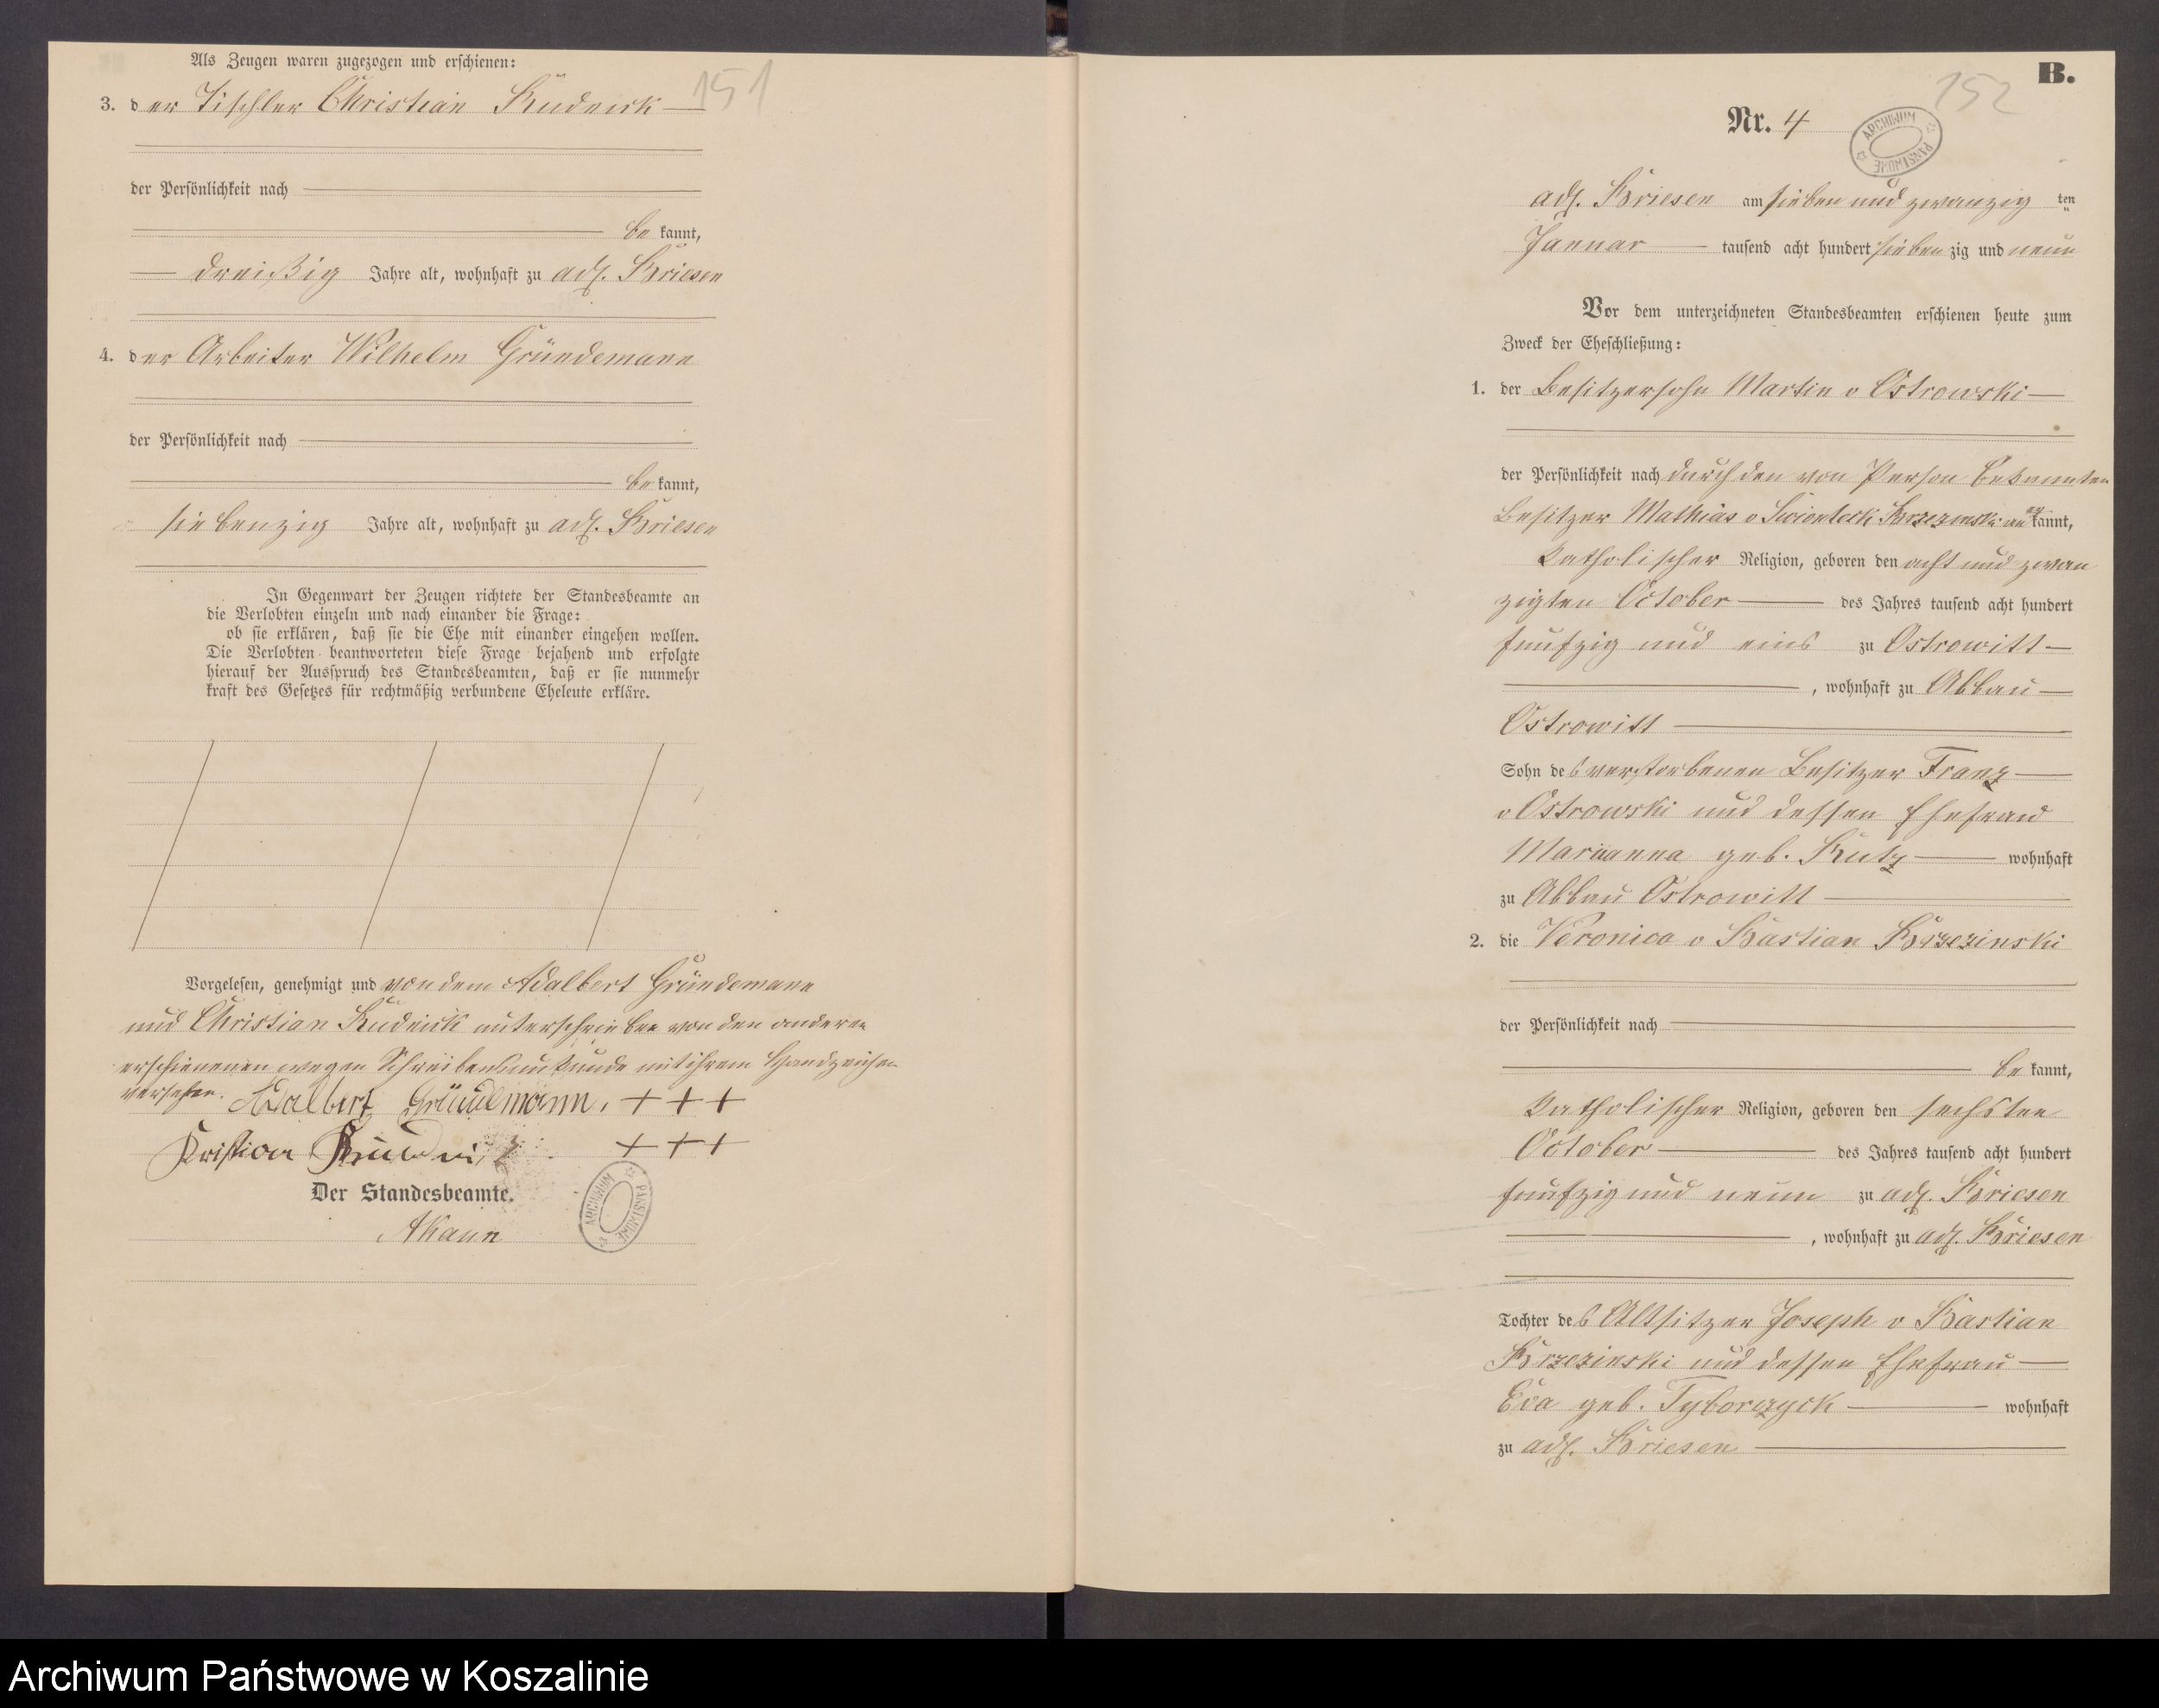 Als Zeugen waren zugezogen und erschienen:
151
3. der Tischler Christian Rudnick
der Persönlichkeit nach
be kannt,
dreißig Jahre alt, wohnhaft zu adl. Briesen
4. der Arbeiter Wilhelm Gründemann
der Persönlichkeit nach
be kannt,
siebenzig Jahre alt, wohnhaft zu adl. Briesen
In Gegenwart der Zeugen richtete der Standesbeamte an
die Verlobten einzeln und nach einander die Frage:
ob sie erklären, daß sie die Ehe mit einander eingehen wollen.
Die Verlobten beantworteten diese Frage bejahend und erfolgte
hierauf der Ausspruch des Standesbeamten, daß er sie nunmehr
kraft des Gesetzes für rechtmäßig verbundene Eheleute erkläre.
Vorgelesen, genehmigt und von dem Adalbert Gründemann
und Christian Rudnick unterschrieben von den anderen
erschienenen wegen Schreibensunkunde mit ihrem Handzeichen
versehen. Adalbert Gründemann. + + +
Kristian Rudnick + + +
Der Standesbeamte.
ARCHIWUM PAŃSTWOWE
AKann
B.
152
Nr. 4
ARCHIWUM PAŃSTWOWE
adl. Briesen am sieben und zwanzig ten
Januar tausend acht hundert sieben zig und neun
Vor dem unterzeichneten Standesbeamten erschienen heute zum
Zweck der Eheschließung:
1. der Besitzersohn Martin v Ostrowski
der Persönlichkeit nach durch den von Person bekannten
Besitzer Mathias v Brzezinski kannt,
katholischer Religion, geboren den acht und zwan
zigten October des Jahres tausend acht hundert
funfzig und eins zu Ostrowitt
, wohnhaft zu Abbau
Ostrowitt
Sohn des verstorbenen Besitzer Franz
v Ostrowski und dessen Ehefrau
Marianna geb. Kutz wohnhaft
zu Abbau Ostrowitt
2. die Veronica v Bastian Brzezinski
der Persönlichkeit nach
be kannt,
katholischer Religion, geboren den sechsten
October des Jahres tausend acht hundert
funfzig und neun zu adl. Briesen
, wohnhaft zu adl. Briesen
Tochter des Altsitzer Joseph v Bastian
Brzezinski und dessen Ehefrau
Eva geb. Tyborczyck wohnhaft
zu adl. Briesen
Archiwum Państwowe w Koszalinie